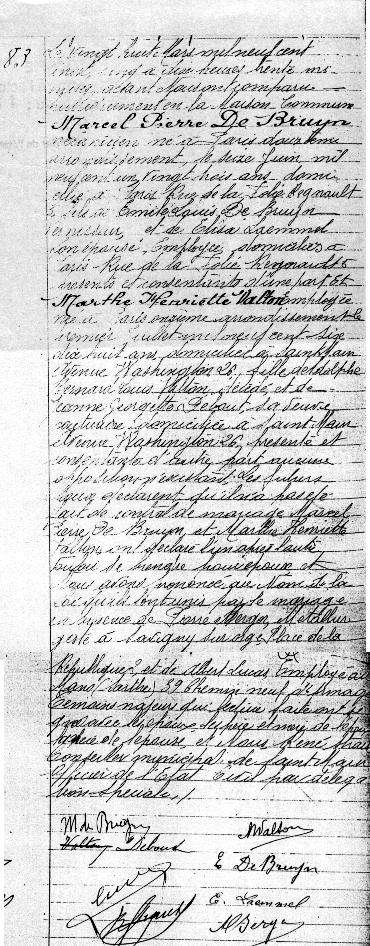 83
Le vingt huit Mars mil neuf cent
vingt cinq à dix heures trente mi
nutes devant Nous ont comparu
publiquement en la Maison Commune
Marcel Pierre De Bruyn
mécanicien né à Paris douzième
arrondissement, le seize Juin mil
neuf cent un vingt trois ans, domi
cilié à Paris Rue de la Folie Regnault
fils de Louis De Bruyn
et de Elisa Laemmel
son épouse, Employée, domiciliés à
Paris Rue de la Folie Regnault 56
présents et consentants d'une part Et
Marthe Henriette Valton Employée
née à Paris onzième arrondissement le
premier Juillet mil neuf cent six
dix huit ans, domiciliée à Saint Maur
Avenue Washington 26, fille de Adolphe
Bernard Louis Valton, décédé et de
Jeanne Georgette Debout sa veuve
couturière domiciliée à Saint Maur
Avenue Washington 26, présente et
consentante d'autre part aucune
opposition n'existant. Les futurs
époux déclarent qu'il n'a pas été
fait de contrat de mariage Marcel
Pierre De Bruyn et Marthe Henriette
Valton ont déclaré l'un après l'autre
vouloir se prendre pour époux et
Nous avons prononcé au Nom de la
Loi qu'ils sont unis par le mariage
en présence de Pierre Métallur
giste à Savigny sur Orge Place de la
République 2 et de Albert Lucas Employé au
Mans (Sarthe) 39 Chemin neuf
témoins majeurs qui lecture faite ont si
gné avec les époux, les père et mère de l'époux
la mère de l'épouse, et Nous René
Conseiller municipal de Saint Maur
Officier de l'Etat Civil par déléga
tion spéciale ./.
M de Bruyn
M Valton
Valton Debout
E De Bruyn
E. Laemmel